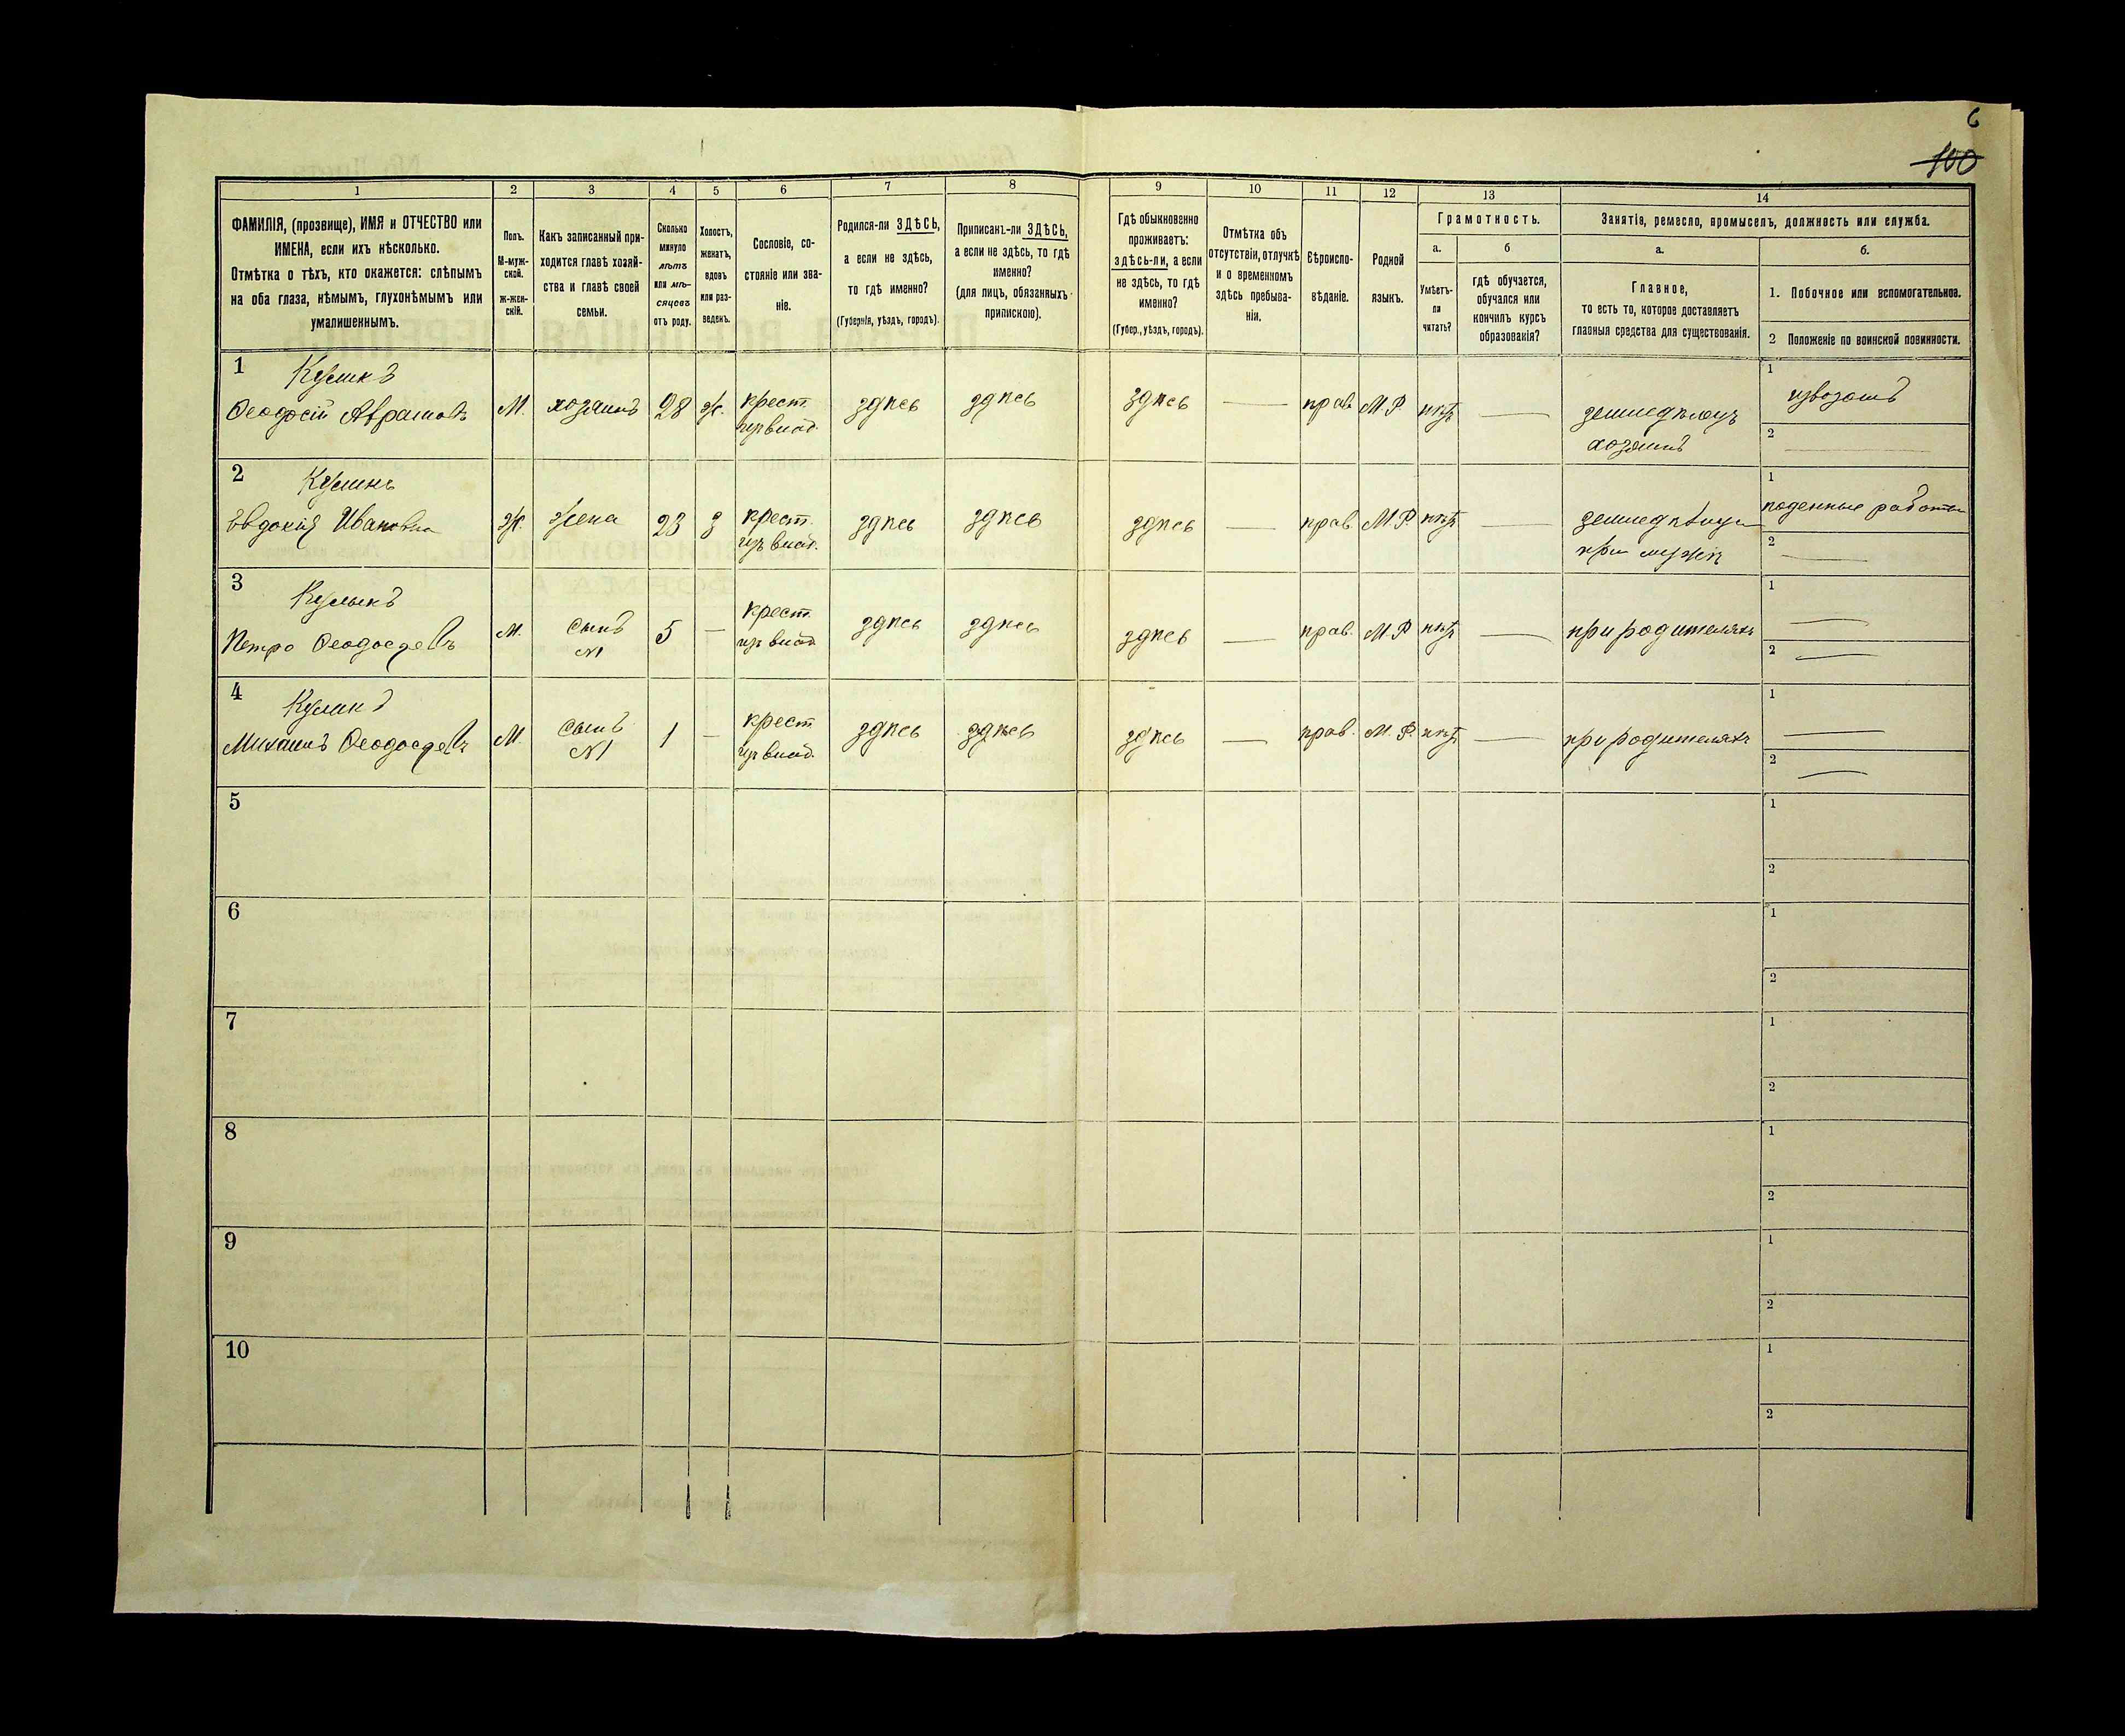 6
100
1
2
3
4
5
6
7
8
9
10
11
12
13
14
ФАМИЛІЯ, (прозвище), ИМЯ и ОТЧЕСТВО или
ИМЕНА, если ихъ нѣсколько.
Отмѣтка о тѣхъ, кто окажется: слѣпымъ
на оба глаза, нѣмымъ, глухонѣмымъ или
умалишеннымъ.
Полъ.
М-муж-
ской.
ж-жен-
скій.
Какъ записанный при-
ходится главѣ хозяй-
ства и главѣ своей
семьи.
Сколько
минуло
лѣтъ
или мѣ-
сяцевъ
отъ роду.
Холостъ,
женатъ,
вдовъ
или раз-
веденъ.
Сословіе, со-
стояніе или зва-
ніе.
Родился-ли ЗДѢСЬ,
а если не здѣсь,
то гдѣ именно?
(Губернія, уѣздъ, городъ).
Приписанъ-ли ЗДѢСЬ,
а если не здѣсь, то гдѣ
именно?
(для лицъ, обязанныхъ
припискою).
Гдѣ обыкновенно
проживаетъ:
здѣсь-ли, а если
не здѣсь, то гдѣ
именно?
(Губер., уѣздъ, городъ).
Отмѣтка объ
отсутствіи, отлучкѣ
и о временномъ
здѣсь пребыва-
ніи.
Вѣроиспо-
вѣданіе.
Родной
языкъ.
Грамотность.
а.
Умѣетъ-
ли
читать?
б
гдѣ обучается,
обучался или
кончилъ курсъ
образованія?
Занятія, ремесло, промыселъ, должность или служба.
а.
Главное,
то есть то, которое доставляетъ
главныя средства для существованія.
б.
1. Побочное или вспомогательное.
2 Положеніе по воинской повинности.
1
Куликъ
Ѳеодосій Авраамовъ
М.
хозяинъ
28
ж.
крест.
изъ влад.
здѣсь
здѣсь
здѣсь
—
прав.
М.Р.
нѣтъ
—
земледѣлецъ
хозяинъ
1
извозомъ
2
—
2
Куликъ
Евдокія Ивановна
Ж.
жена
23
з
крест.
изъ влад.
здѣсь
здѣсь
здѣсь
—
прав.
М.Р.
нѣтъ
—
земледѣлица
при мужѣ
1
поденные работы
2
—
3
Куликъ
Петро Ѳеодосіевъ
М.
сынъ
N1
5
—
крест.
изъ влад.
здѣсь
здѣсь
здѣсь
—
прав.
М.Р
нѣтъ
—
при родителяхъ
1
—
2
—
4
Куликъ
Михаилъ Ѳеодосіевъ
М.
сынъ
N1
1
—
крест
изъ влад.
здѣсь
здѣсь
здѣсь
—
прав.
М.Р.
нѣтъ
—
при родителяхъ
1
—
2
—
5
1
2
6
1
2
7
1
2
8
1
2
9
1
2
10
1
2